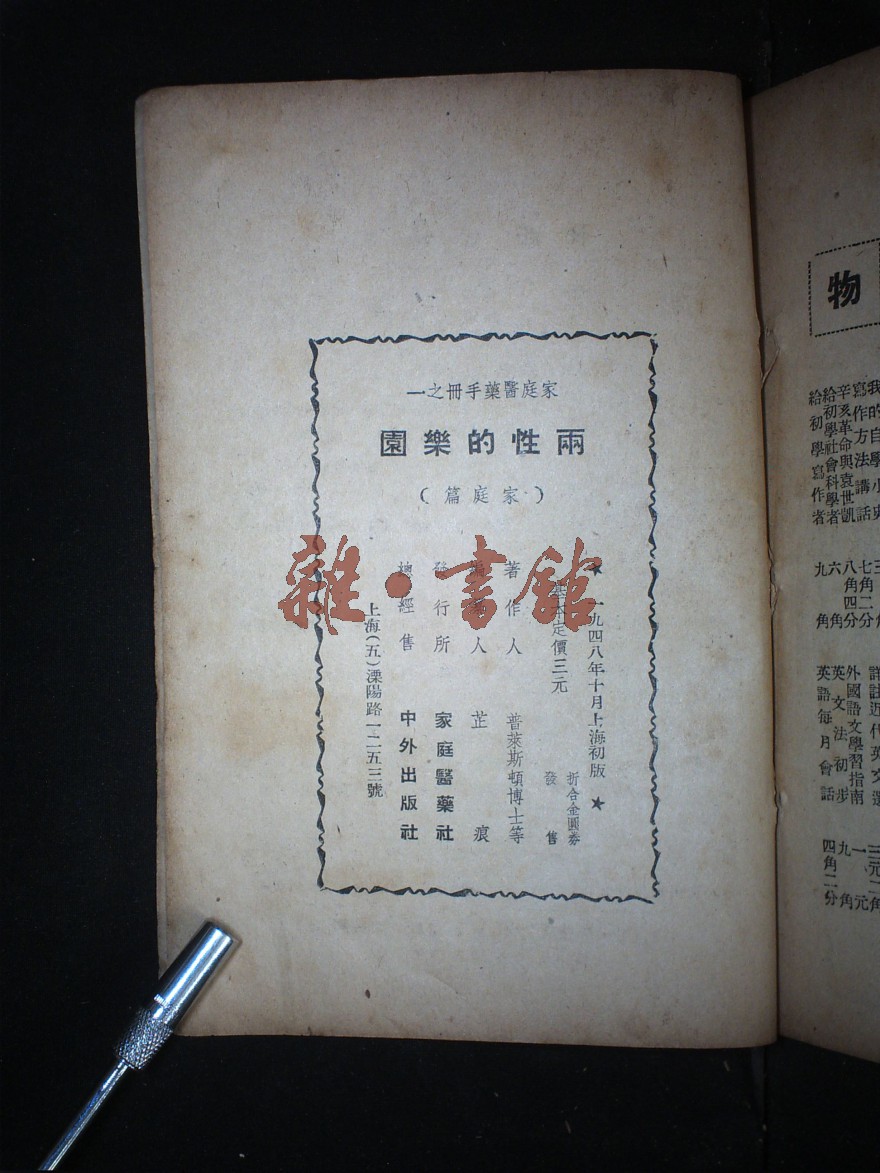 家庭醫藥手冊之一
兩性的樂園
（家庭篇）
★ 一九四八年十月上海初版 ★
基本定價三元 折合金圓券發售
著作人 普萊斯頓博士等
人 芷痕
發行所 家庭醫藥社
總經售 中外出版社
上海（五）溧陽路一二五三號
雜·書館
物
辛亥革命與袁世凱
給初學社會科學者
給初學寫作者
外國語文學習指南
英文法初步
英語每月會話